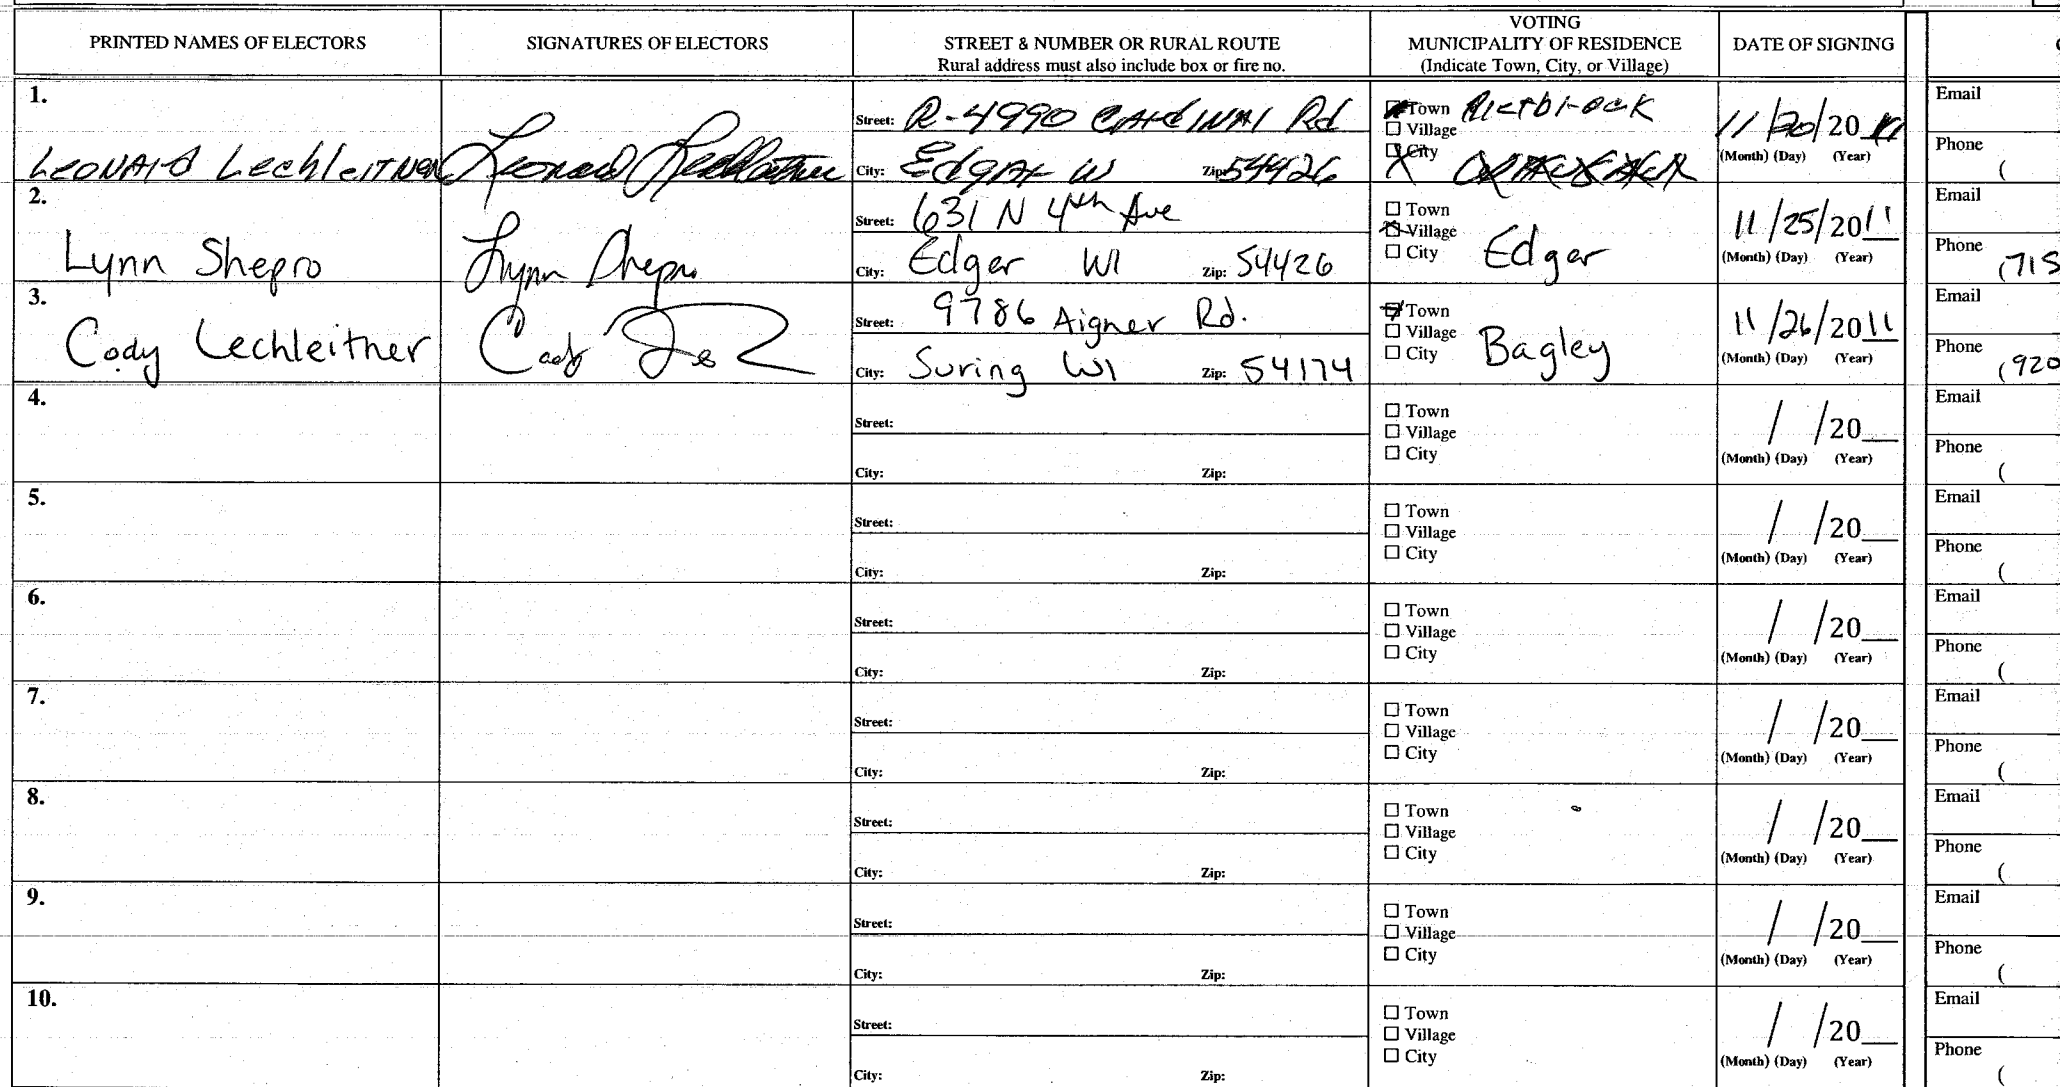 PRINTED NAMES OF ELECTORS
SIGNATURES OF ELECTORS
STREET & NUMBER OR RURAL ROUTE
Rural address must also include box or fire no.
VOTING
MUNICIPALITY OF RESIDENCE
(Indicate Town, City, or Village)
DATE OF SIGNING
1.
Leonard Lechleitner
Leonard Lechleitner
Street: R-4990 Cardinal Rd
City: Edgar W Zip: 54426
Town Rietbrock
Village
City
11/20/20 11
(Month) (Day) (Year)
Email
Phone
(
2.
Lynn Shepro
Lynn Shepro
Street: 631 N 4th Ave
City: Edgar WI Zip: 54426
Town
Village
City
Edgar
11/25/2011
(Month) (Day) (Year)
Email
Phone
(715
3.
Cody Lechleitner
Cody
Street: 9786 Aigner Rd.
City: Suring WI Zip: 54174
Town
Village
City
Bagley
11/26/2011
(Month) (Day) (Year)
Email
Phone
(920
4.
Street:
City: Zip:
Town
Village
City
/ /20__
(Month) (Day) (Year)
Email
Phone
(
5.
Street:
City: Zip:
Town
Village
City
/ /20__
(Month) (Day) (Year)
Email
Phone
(
6.
Street:
City: Zip:
Town
Village
City
/ /20__
(Month) (Day) (Year)
Email
Phone
(
7.
Street:
City: Zip:
Town
Village
City
/ /20__
(Month) (Day) (Year)
Email
Phone
(
8.
Street:
City: Zip:
Town
Village
City
/ /20__
(Month) (Day) (Year)
Email
Phone
(
9.
Street:
City: Zip:
Town
Village
City
/ /20__
(Month) (Day) (Year)
Email
Phone
(
10.
Street:
City: Zip:
Town
Village
City
/ /20__
(Month) (Day) (Year)
Email
Phone
(